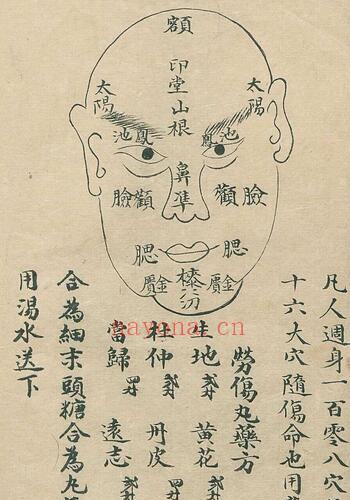 額
印堂山根
太陽
太陽
鳳池
鳳池
鼻準
顴臉
顴臉
腮
腮
金
金
凡人週身一百零八穴
十六大穴隨傷命也用
勞傷丸藥方
生地
黄花
杜仲
丹皮
當歸
遠志
合為細末頭糖合為丸
用湯水送下